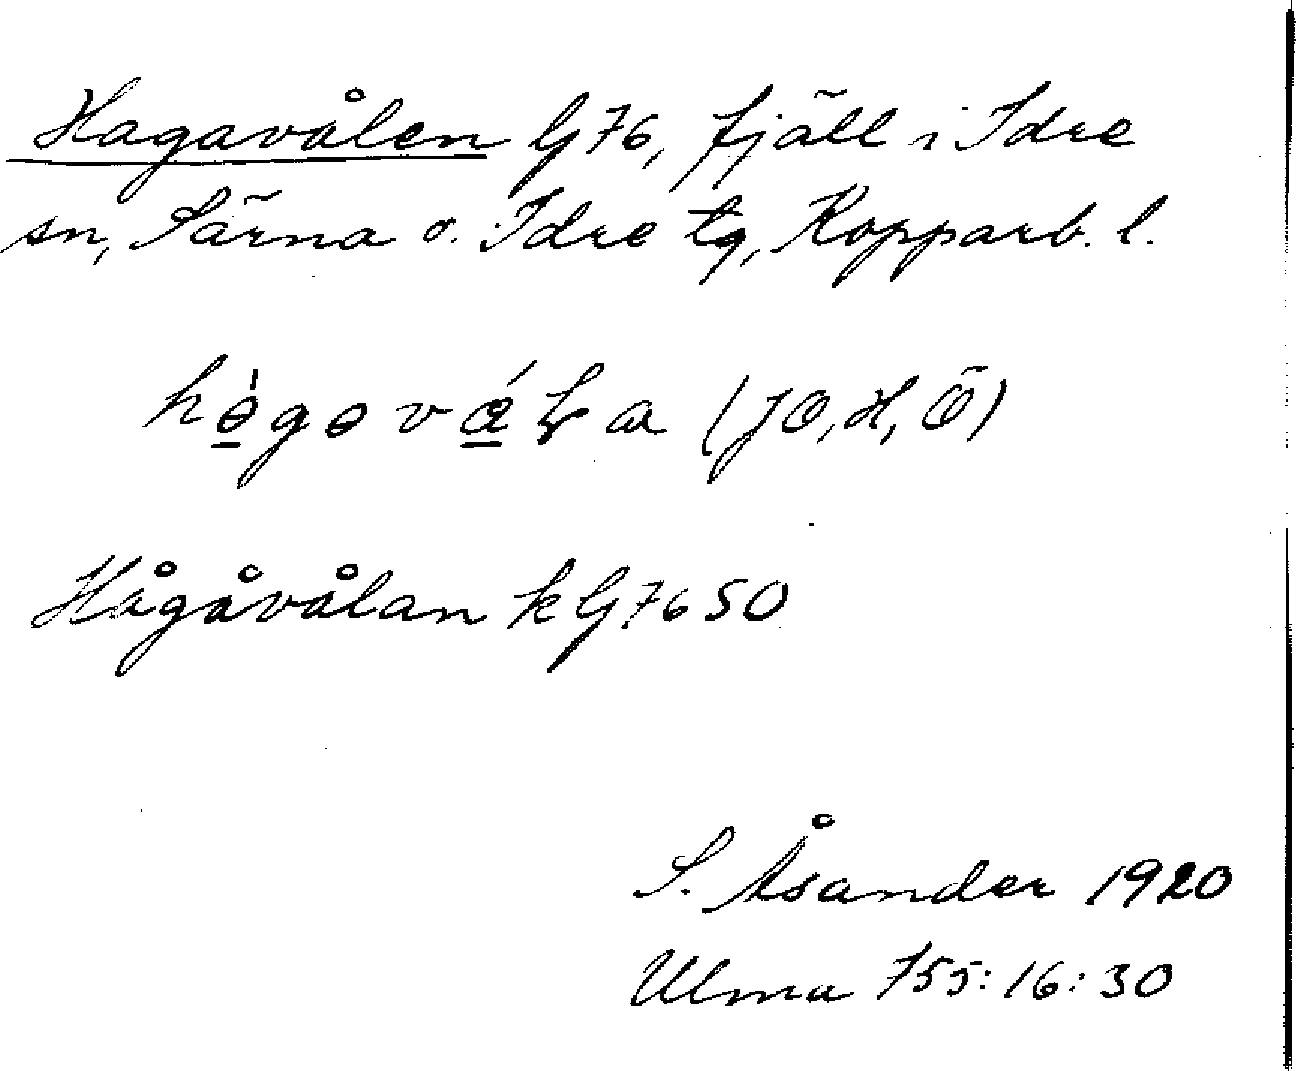 Hagavålen G76, fjäll i Idre
sn, Särna o. Idre tg, Kopparb. l.
(JO, H, Ö)
Hågåvålan kG7650
S. Åsander 1920
Ulma 755:16:30